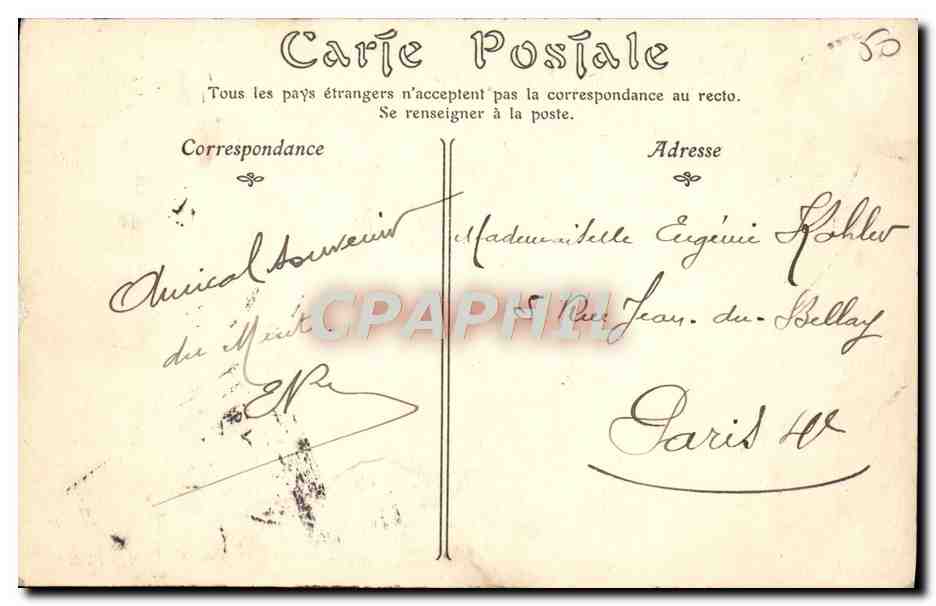 Carte Postale
50
Tous les pays étrangers n'acceptent pas la correspondance au recto.
Se renseigner à la poste.
Correspondance
Amical souvenir
du
Adresse
Mademoiselle Eugénie Kohler
5 Rue Jean-du-Bellay
Paris 4e
CPAPHIL